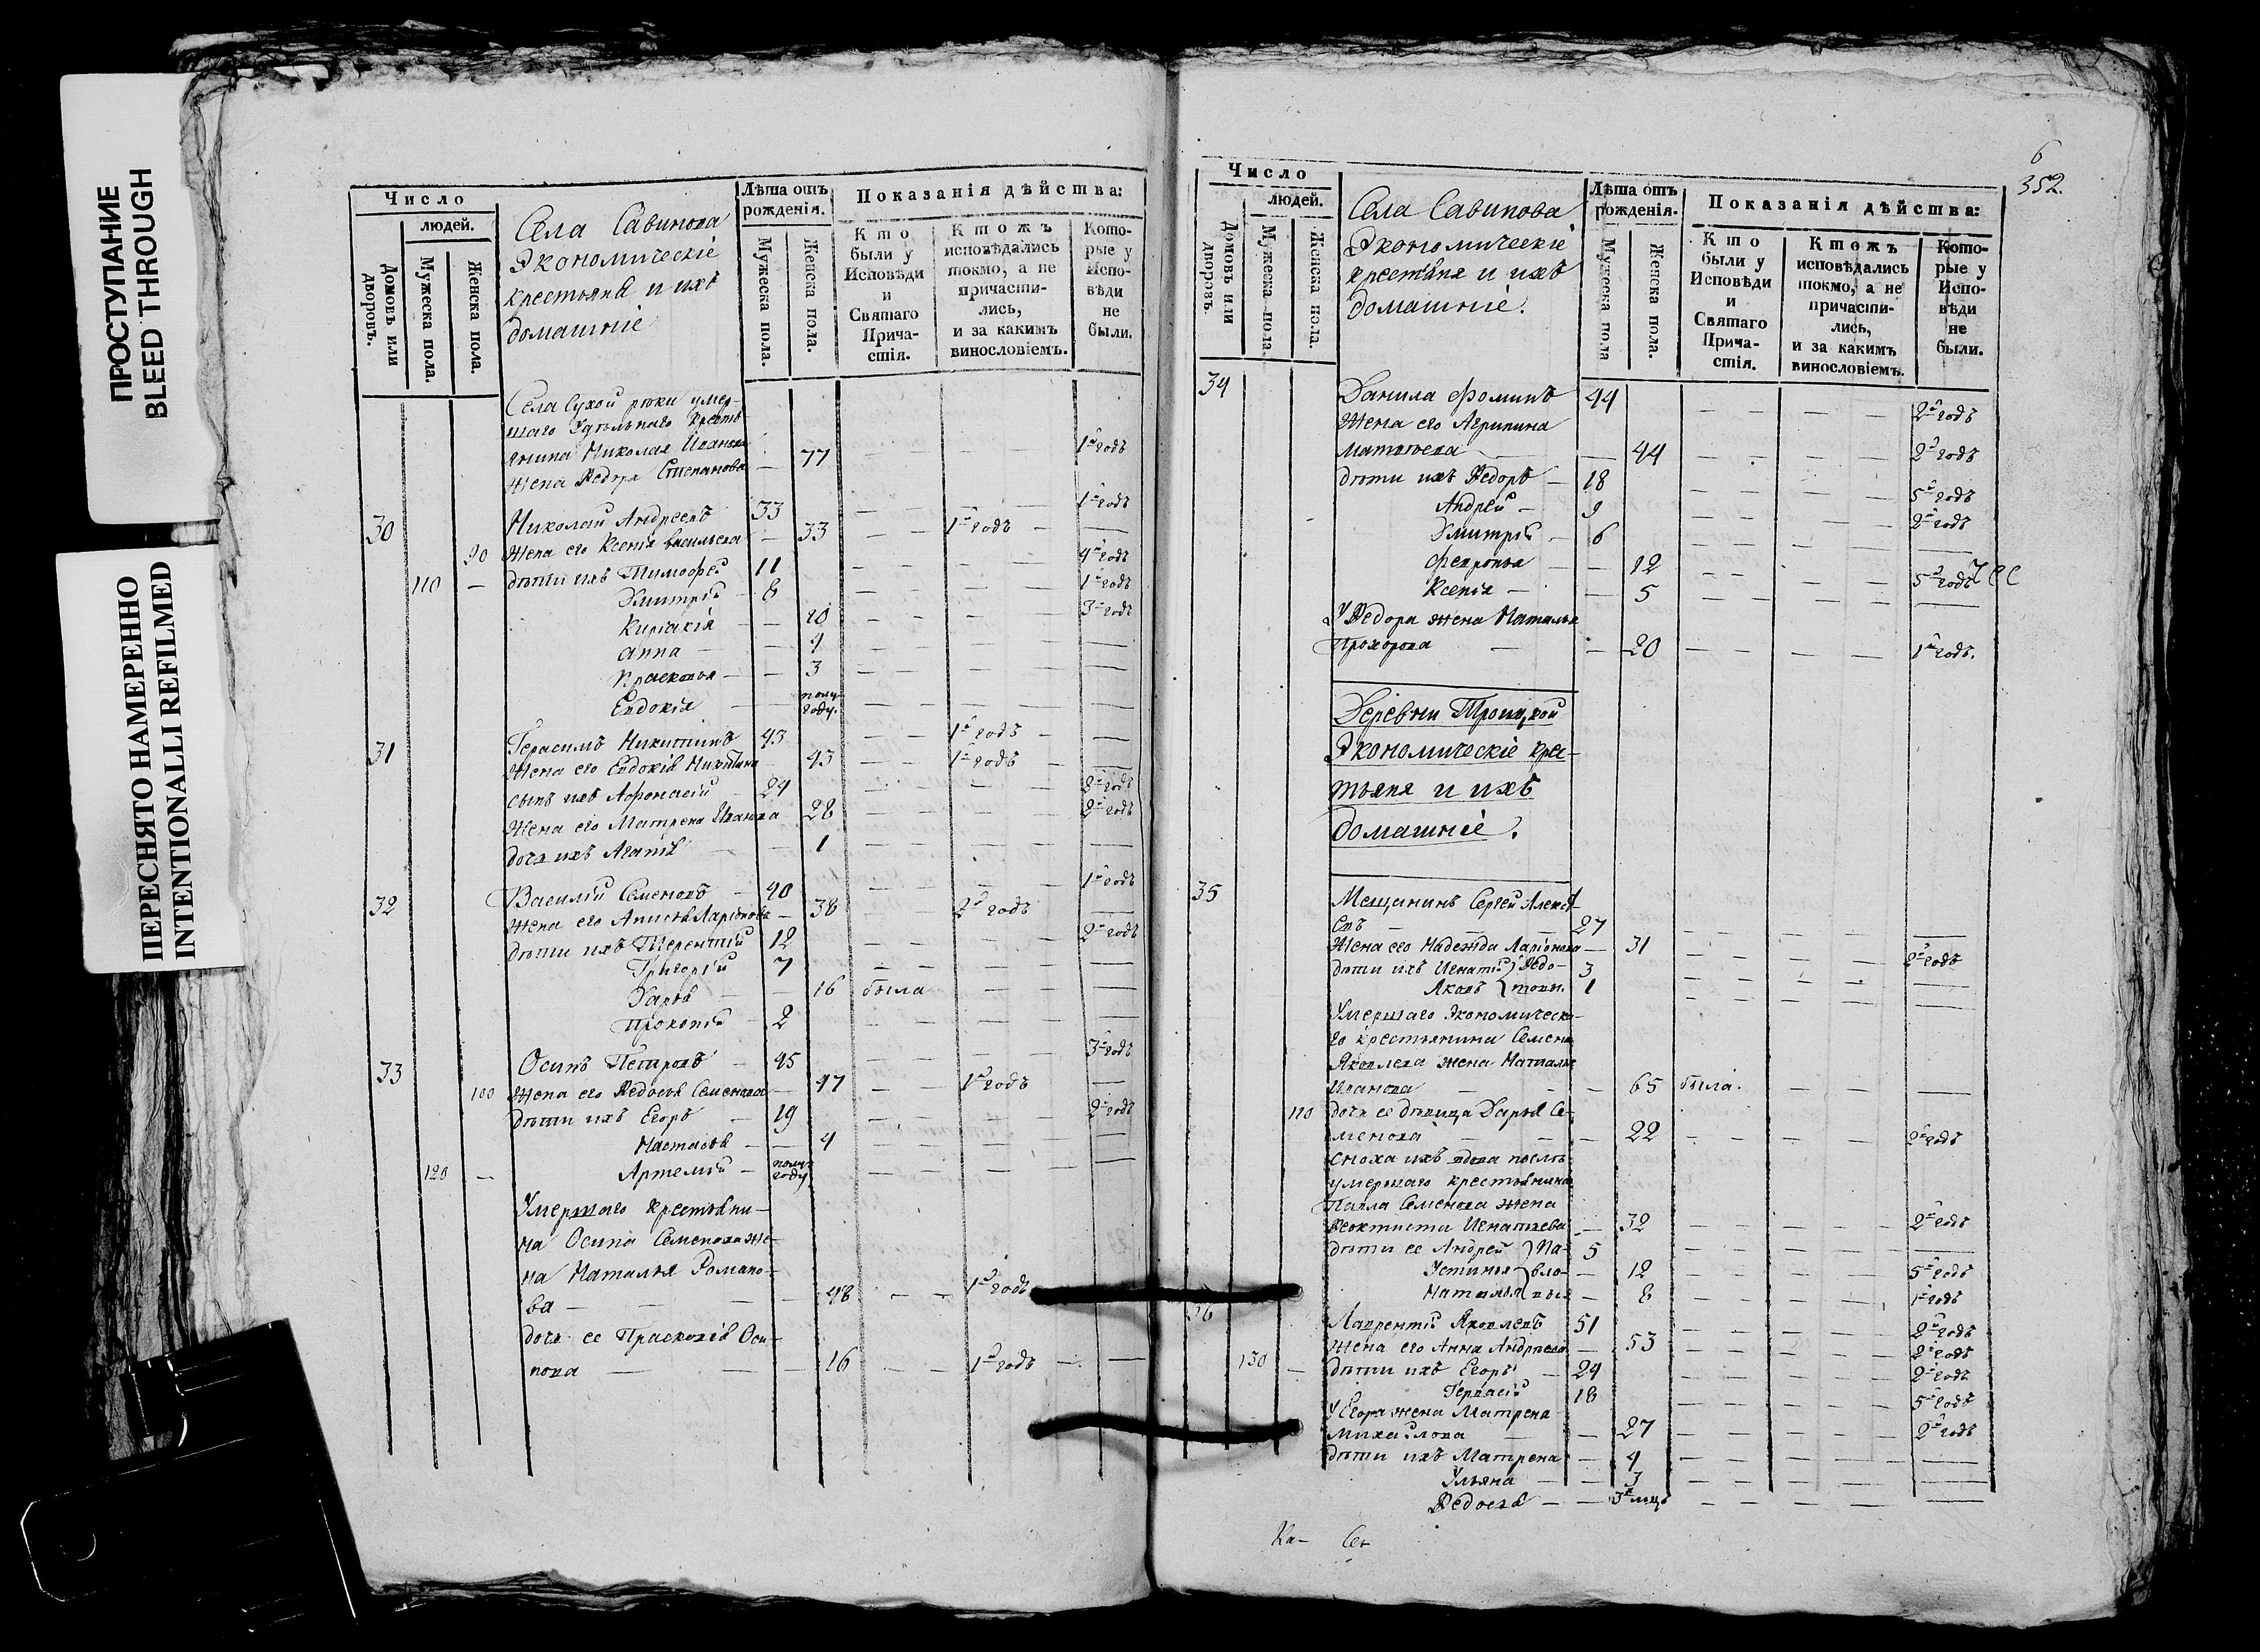 ПРОСТУПАНИЕ
BLEED THROUGH
ПЕРЕСНЯТО НАМЕРЕННО
INTENTIONALLI REFILMED
Число
людей.
Домовъ или дворовъ.
Мужеска пола.
Женска пола.
Села Савинова
Экономическіе
крестьяне и ихъ
домашніе
Лѣта отъ рожденія.
Мужеска пола.
Женска пола.
Показанія дѣйства:
Кто были у Исповѣди и Святаго Причастія.
Ктожъ исповѣдались токмо, а не причастились, и за какимъ винословіемъ.
Которые у Исповѣди не были.
Села Сухой рѣки умер-
шаго Удѣльнаго кресть
янина Николая Иванова
жена Ѳедора Степанова — 77 1й годъ
30 Николай Андреевъ 33 1й годъ
20 жена его Ксенія Васильева — 33 1й годъ
110 — дѣти ихъ Тимоофей 11 4й годъ
Дмитрій 8 1й годъ
Киріакія — 10 3й годъ
Анна — 4
Прасковья — 3
Евдокія — полугоду.
31 Герасимъ Никитинъ 43 1й годъ
жена его Евдокія Никитина 43 1й годъ
сынъ ихъ Афонасій 24 2й годъ
жена его Матрена Иванова 28 2й годъ
дочь ихъ Агапія — 1
32 Василій Семеновъ — 40 1й годъ
жена его Анисья Ларіонова — 38 2й годъ
дѣти ихъ Терентій 12 2й годъ
Григорій 7
Дарья — 16 была
Прокопій — 2
33 Осипъ Петровъ — 45 3й годъ
100 жена его Ѳедосья Семенова — 47 1й годъ
дѣти ихъ Егоръ — 19 2й годъ
Настасья — 4
120 — Артемій — полугоду
Умершаго крестьяни-
на Осипа Семенова же-
на Наталья Романо-
ва — 48 1й годъ
дочь ее Прасковья Оси-
пова — 16 1й годъ
6
352.
Число
людей.
Домовъ или дворовъ.
Мужеска пола.
Женска пола.
Села Савинова
Экономическіе
крестьяня и ихъ
домашніе.
Лѣта отъ рожденія.
Мужеска пола
Женска пола.
Показанія дѣйства:
Кто были у Исповѣди и Святаго Причастія.
Ктожъ исповѣдались токмо, а не причастились, и за какимъ винословіемъ.
Которые у Исповѣди не были.
34 Данила Фоминъ 44 2й годъ
Жена его Агрипина
Матвѣева — 44 2й годъ
дѣти ихъ Ѳедоръ — 18 5й годъ
Андрей — 9 2й годъ
Дмитрій — 6
Февронья — 12 5й годъ
Ксенія — 5
У Ѳедора жена Наталья
Прохорова — 20 1й годъ.
Деревни Троицкой
Экономическіе крес-
тьяня и ихъ
домашніе.
35 Мещанинъ Сергей Алексѣ-
евъ — 27
Жена его Надежда Ларіонова — 31 2й годъ
дѣти ихъ Игнатій } Ѳедо- 3
Яковъ } товы. 1
Умершаго Экономическа-
го крестьянина Семена
Яковлева жена Наталья
Иванова — 65 была.
110 дочь ее дѣвица Дарья Се-
менова — 22 2й годъ
сноха ихъ вдова послѣ
умершаго крестьянина
Павла Семенова жена
Ѳеоктиста Игнатьева — 32 2й годъ
дѣти ее Андрей } Па- 5
Устинья } вло- — 12 5й годъ
Наталья } вы — 8 1й годъ
36 Лаврентій Яковлевъ 51 2й годъ
жена его Анна Андреева — 53 2й годъ
130 — дѣти ихъ Егоръ — 24 2й годъ
Гервасій 18 5й годъ
У Егора жена Матрена
Михайлова — 27 2й годъ
дѣти ихъ Матрена — 4
Ульяна — 3
Ѳедосья — 3 мцъ